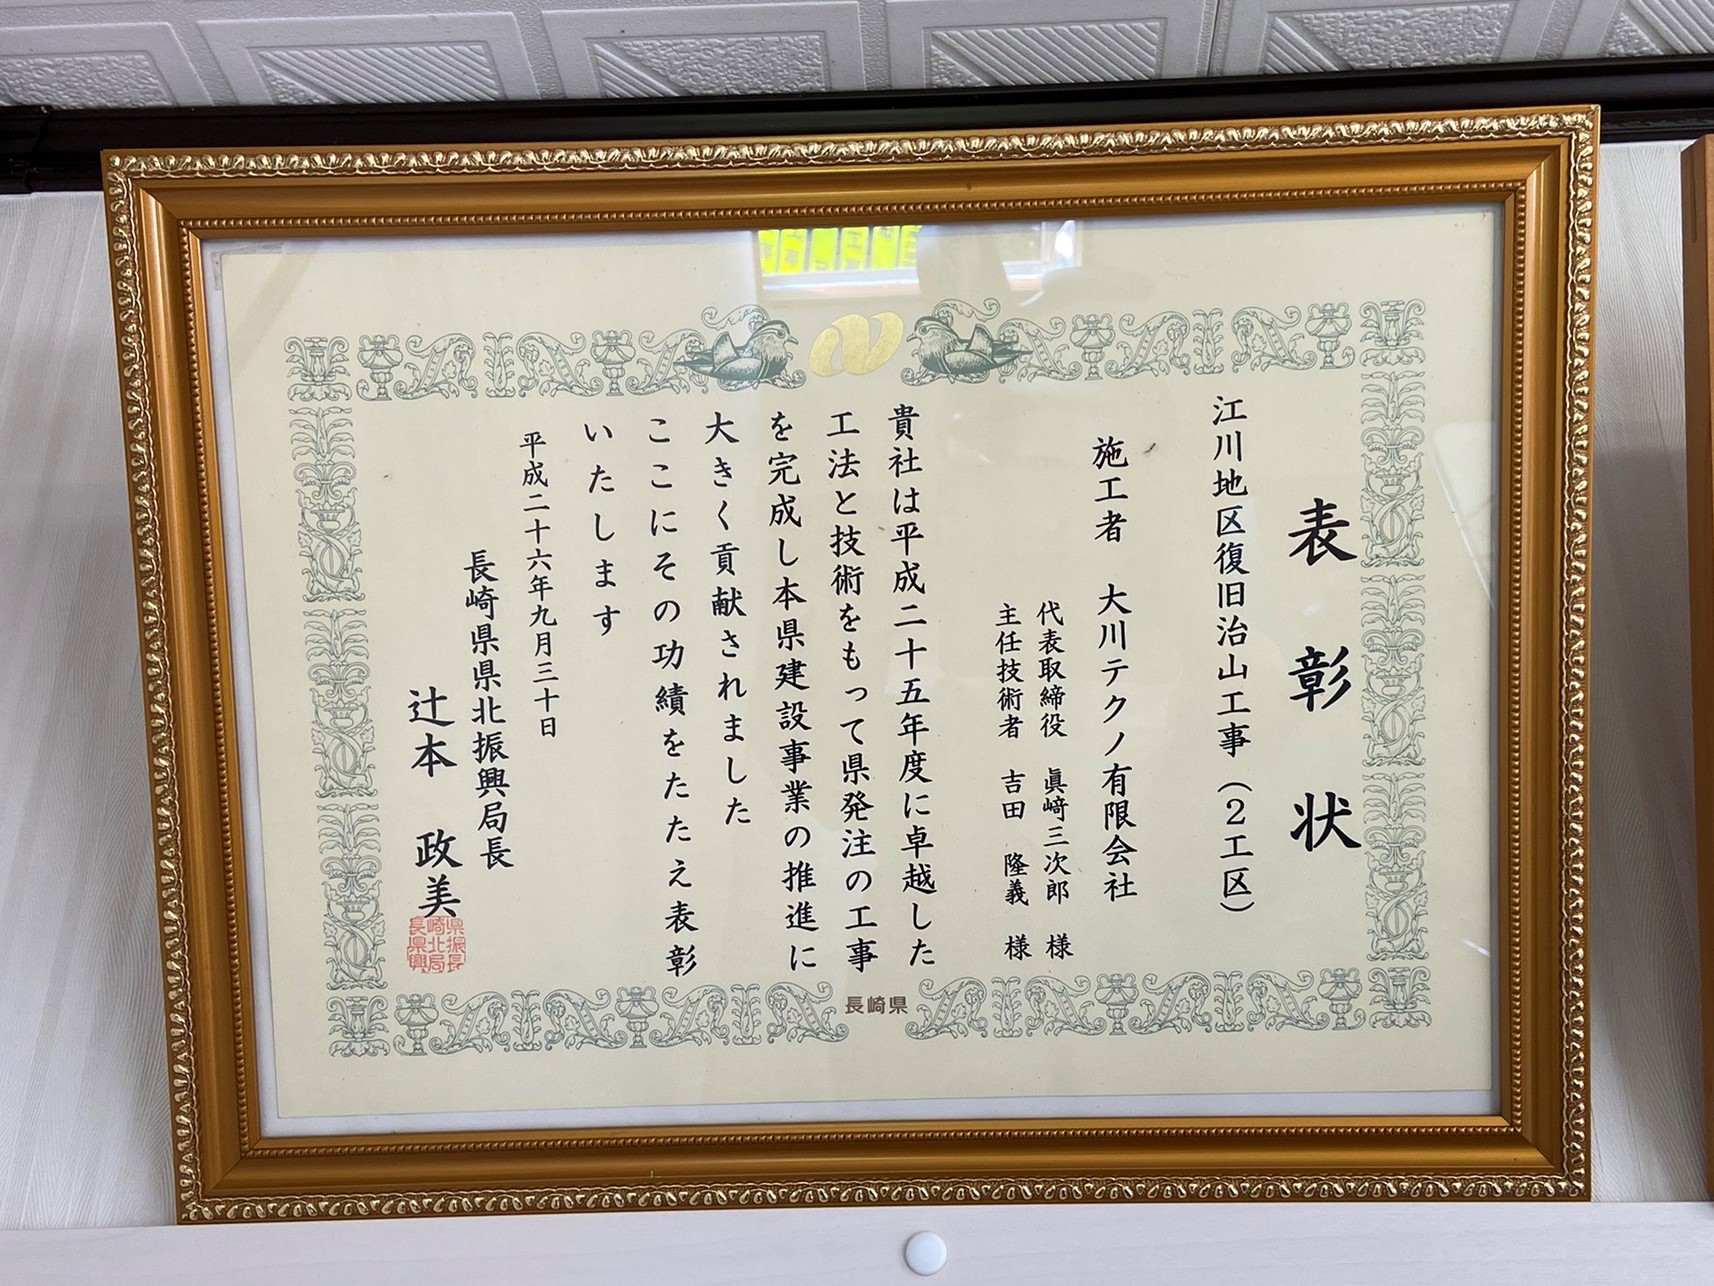 表彰状
江川地区復旧治山工事(2工区)
施工者 大川テクノ有限会社
代表取締役 眞﨑三次郎 様
主任技術者 吉田 隆義 様
貴社は平成二十五年度に卓越した
工法と技術をもって県発注の工事
を完成し本県建設事業の推進に
大きく貢献されました
ここにその功績をたたえ表彰
いたします
平成二十六年九月三十日
長崎県県北振興局長
辻本 政美
長崎県